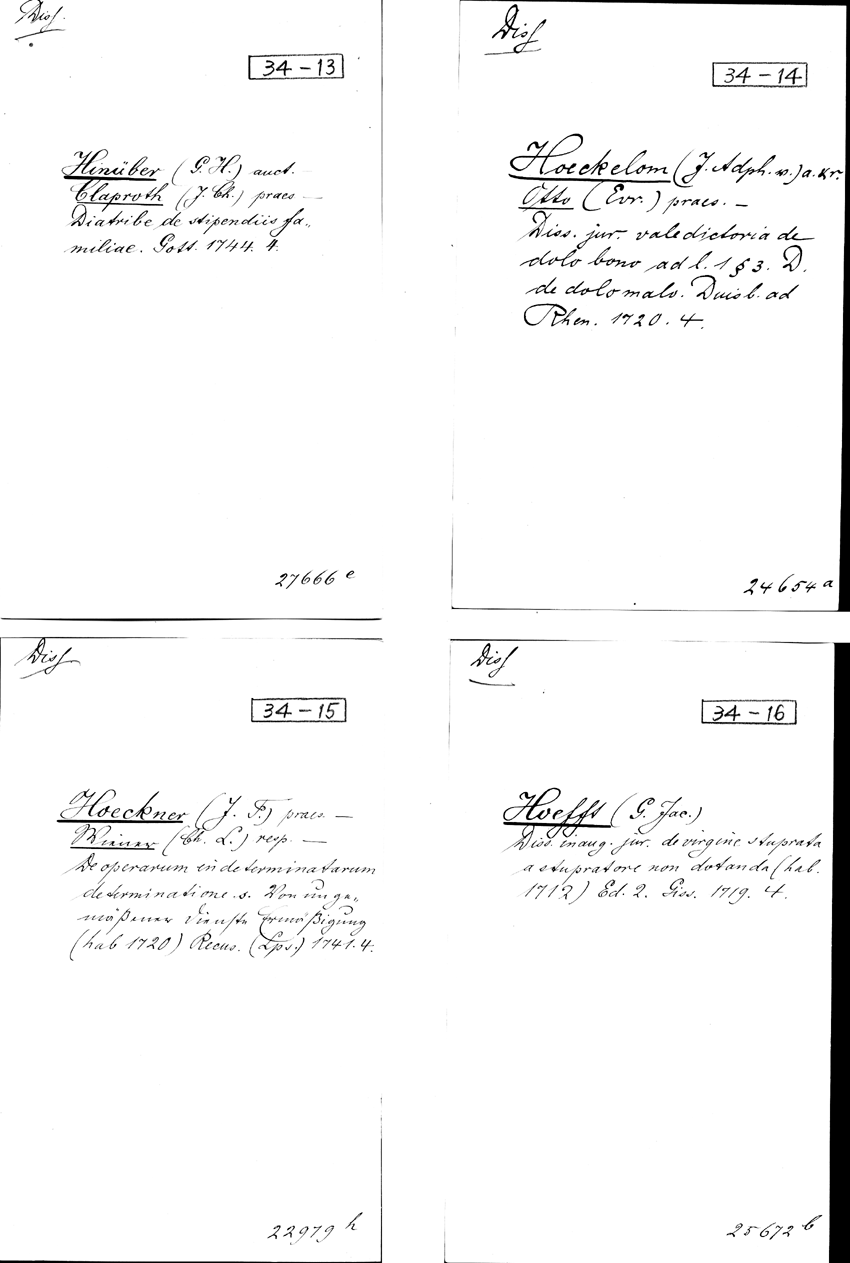 Diss.
34-13
Hinüber (G. H.) auct. —
Claproth (J. Ch.) praes —
Diatribe de stipendiis fa-
miliae. Gott. 1744. 4.
27666 e
Diss
34-14
Hoeckelom (J. Adph. v.) a. &r.
Otto (Evr.) praes. —
Diss. jur. valedictoria de
dolo bono ad l. 1 § 3. D.
de dolo malo. Duisb. ad
Rhen. 1720. 4.
24654 a
Diss
34-15
Hoeckner (J. F.) praes. —
Wiener (Ch. L.) resp. —
De operarum indeterminatarum
determinatione. s. Von unge-
mäßener Dienste Ermäßigung
(hab 1720) Recus. (Lps.) 1741. 4.
22979 h
Diss
34-16
Hoefft (G. Jac.)
Diss. inaug. jur. de virgine stuprata
a stupratore non dotanda (hab.
1712) Ed. 2. Giss. 1719. 4.
25672 b